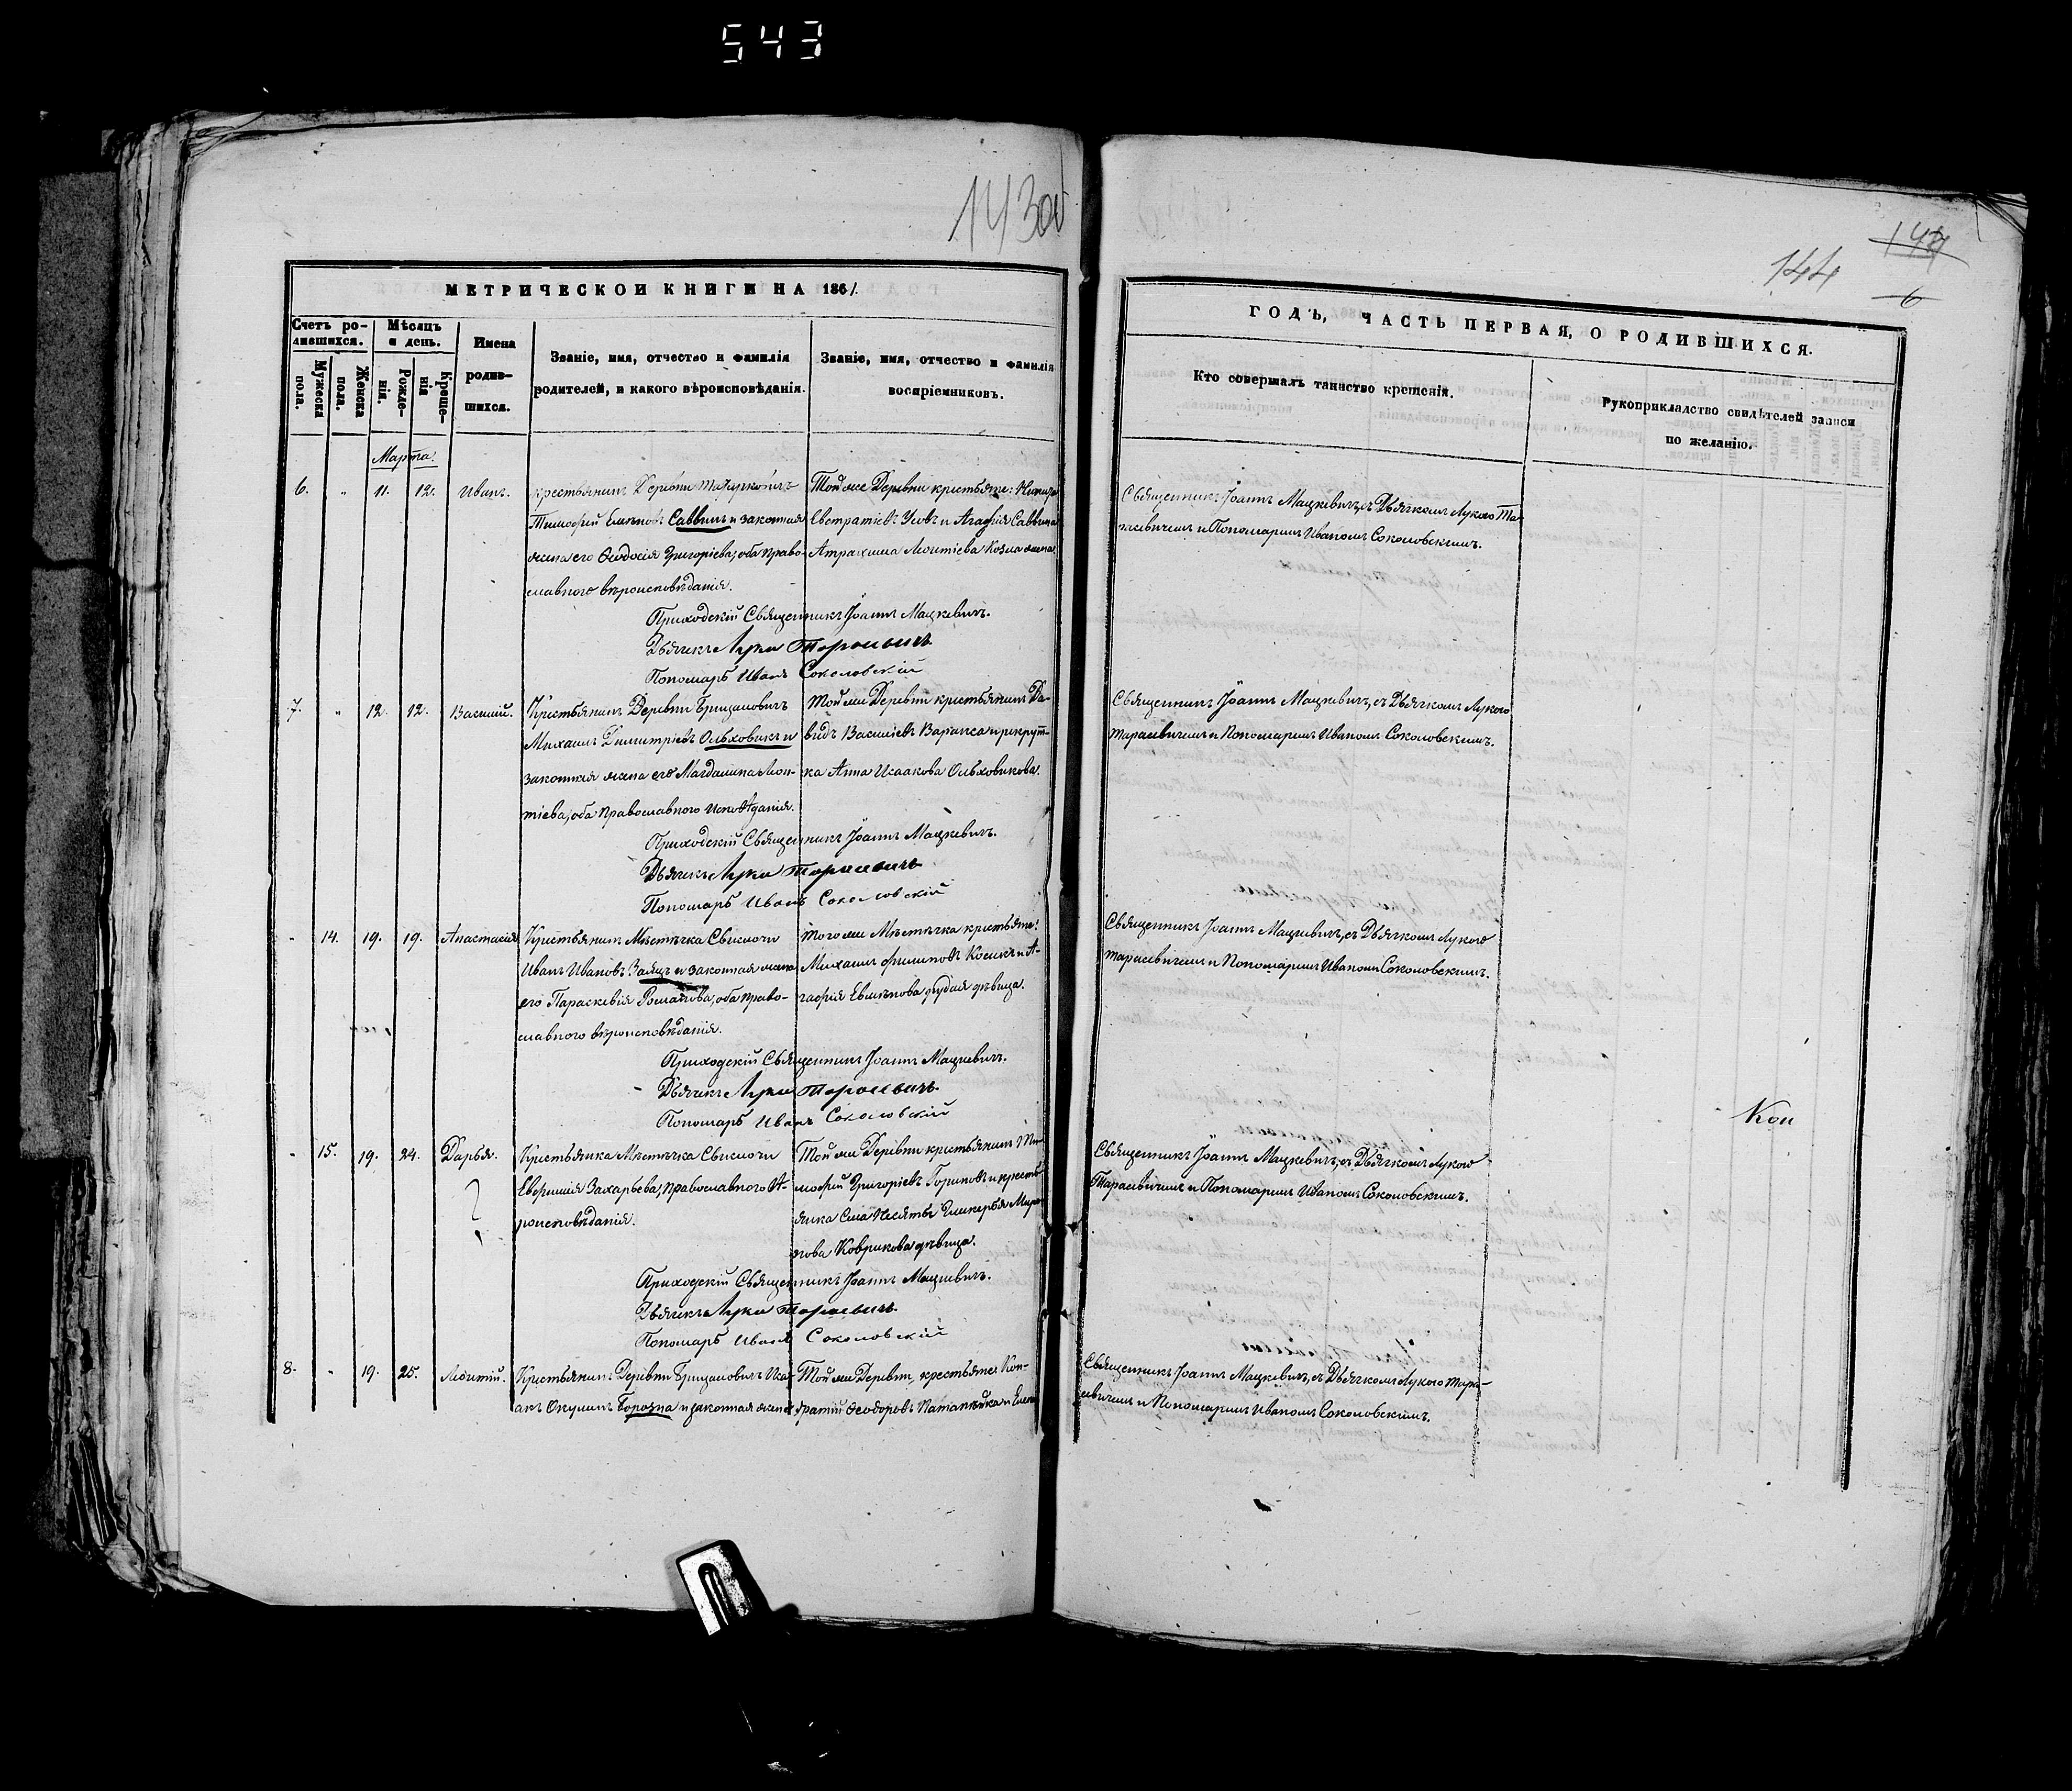 543
143об
144
6
МЕТРИЧЕСКОЙ КНИГИ НА 1861.
Счетъ ро-
дившихся.
Мѣсяцъ
и день.
Имена
родив-
шихся.
Мужеска
пола.
Женска
пола.
Рожде-
нія.
Креще-
нія
Званіе, имя, отчество и фамилія
родителей, и какого вѣроисповѣданія.
Званіе, имя, отчество и фамилія
воспріемниковъ.
Марта.
6. " 11. 12. Иванъ.
крестьянинъ Деревни
Тимофей Саввинъ и законная
жена его Ѳеодосія Григоріева, оба право-
славного вѣроисповѣданія.
Той же Деревни крестьяне:
Евстратіевъ Усовъ и Агафія Саввина
Приходскій Священникъ Іоаннъ Мацкевичъ.
Дьячекъ Лука Тарасевичъ
Пономарь Иванъ Соколовскій
7. " 12. 12. Василій.
Крестьянинъ Деревни
Михаилъ Димитріевъ Ольховикъ и
законная жена его Магдалина Леон-
тіева, оба православного исповѣданія.
Той же Деревни крестьянинъ Да-
видъ Василіевъ и рекрут-
ка Анна Исаакова Ольховикова.
Приходскій Священникъ Іоаннъ Мацкевичъ.
Дьячекъ Лука Тарасевичъ
Пономарь Иванъ Соколовскій
" 14. 19. 19. Анастасія
Крестьянинъ Мѣстечка Свислочи
Иванъ Ивановъ Заяцъ и законная жена
его Параскевія Романова, оба право-
славного вѣроисповѣданія.
Того же Мѣстечка крестьяне:
Михаилъ Филиповъ Косикъ и А-
гафія дѣвица.
Приходскій Священникъ Іоаннъ Мацкевичъ.
Дьячекъ Лука Тарасевичъ.
Пономарь Иванъ Соколовскій
" 15. 19. 24. Дарья.
Крестьянка Мѣстечка Свислочи
Евфимія Захарьева, православного вѣ-
роисповѣданія.
Той же Деревни крестьянинъ Ти-
мофей Григоріевъ и кресть-
янка Села Гликерья Миро-
нова Коврикова дѣвица.
Приходскій Священникъ Іоаннъ Мацкевичъ.
Дьячекъ Лука Тарасевичъ.
Пономарь Иванъ Соколовскій
8. " 19. 25. Леонтій.
Крестьянинъ Деревни Иса-
акъ Борозна и законная жена
Той же Деревни, крестьяне: Кон-
дратій Ѳеодоровъ и
ГОДЪ, ЧАСТЬ ПЕРВАЯ, О РОДИВШИХСЯ.
Кто совершалъ таинство крещенія.
Рукоприкладство свидѣтелей записи
по желанію.
Священникъ Іоаннъ Мацкевичъ, съ Дьячкомъ Лукою Та-
расевичемъ и Пономаремъ Иваномъ Соколовскимъ.
Священникъ Іоаннъ Мацкевичъ, съ Дьячкомъ Лукою
Тарасевичемъ и Пономаремъ Иваномъ Соколовскимъ.
Священникъ Іоаннъ Мацкевичъ, съ Дьячкомъ Лукою
Тарасевичемъ и Пономаремъ Иваномъ Соколовскимъ.
Священникъ Іоаннъ Мацкевичъ, съ Дьячкомъ Лукою
Тарасевичемъ и Пономаремъ Иваномъ Соколовскимъ.
Священникъ Іоаннъ Мацкевичъ, съ Дьячкомъ Лукою Тара-
севичемъ и Пономаремъ Иваномъ Соколовскимъ.
Коп